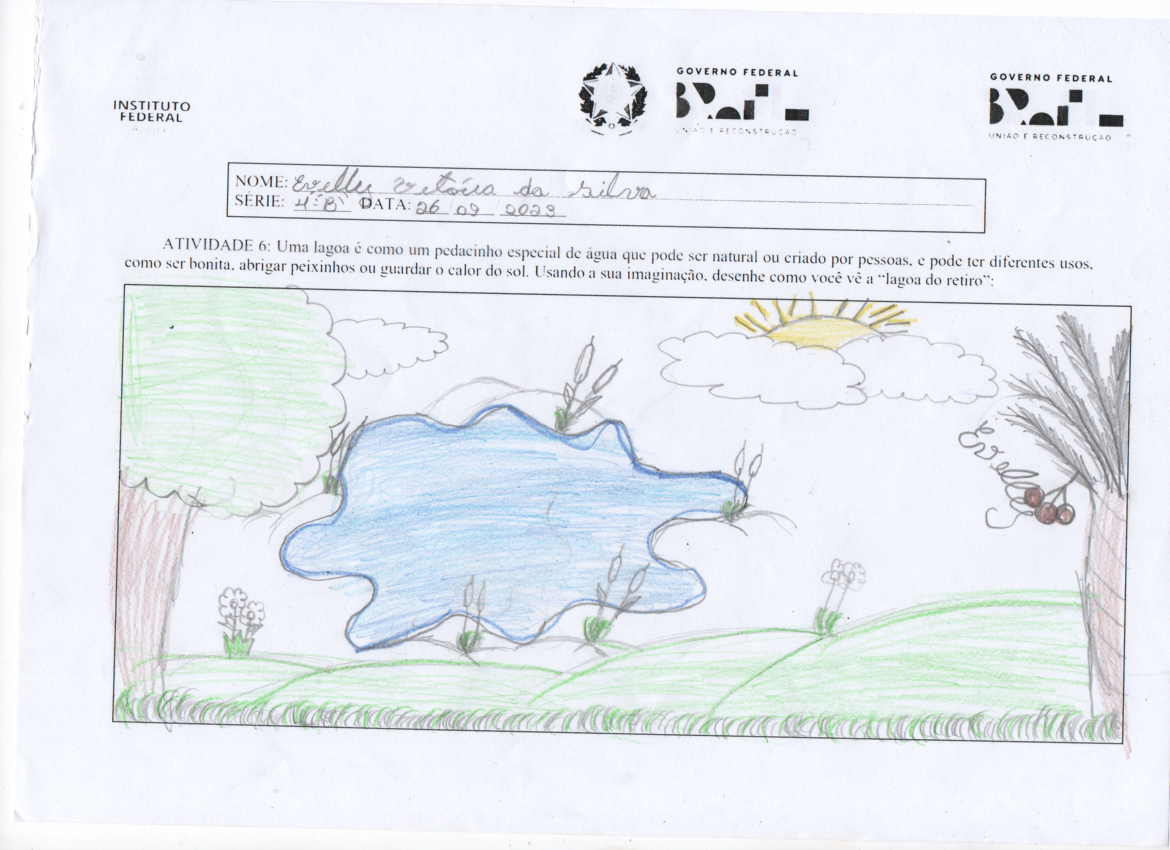 INSTITUTO
FEDERAL
GOVERNO FEDERAL
BRASIL
UNIÃO E RECONSTRUÇÃO
GOVERNO FEDERAL
BRASIL
UNIÃO E RECONSTRUÇÃO
NOME: Evelly Vitória da Silva
SÉRIE: 4º B DATA: 26 09 2023
ATIVIDADE 6: Uma lagoa é como um pedacinho especial de água que pode ser natural ou criado por pessoas, e pode ter diferentes usos,
como ser bonita, abrigar peixinhos ou guardar o calor do sol. Usando a sua imaginação, desenhe como você vê a “lagoa do retiro”:
Evelly